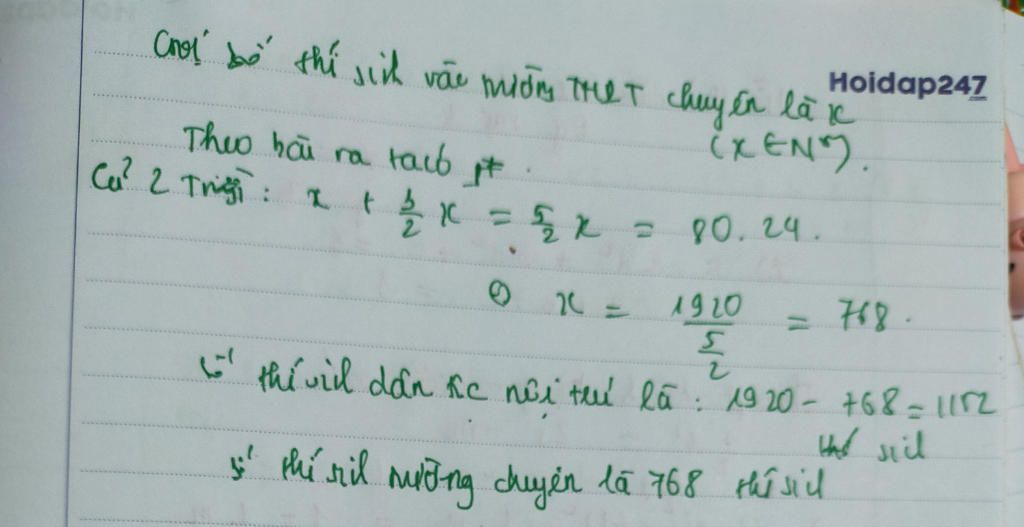 Gọi số thí sinh vào trường THPT chuyên là x
Hoidap247
(x ∈ N*).
Theo bài ra ta có pt
Cả 2 Trường: x + 3/2 x = 5/2 x = 80.24.
x = 1920 / (5/2) = 768.
Số thí sinh dân tộc nội trú là: 1920 - 768 = 1152
thí sinh
Số thí sinh trường chuyên là 768 thí sinh